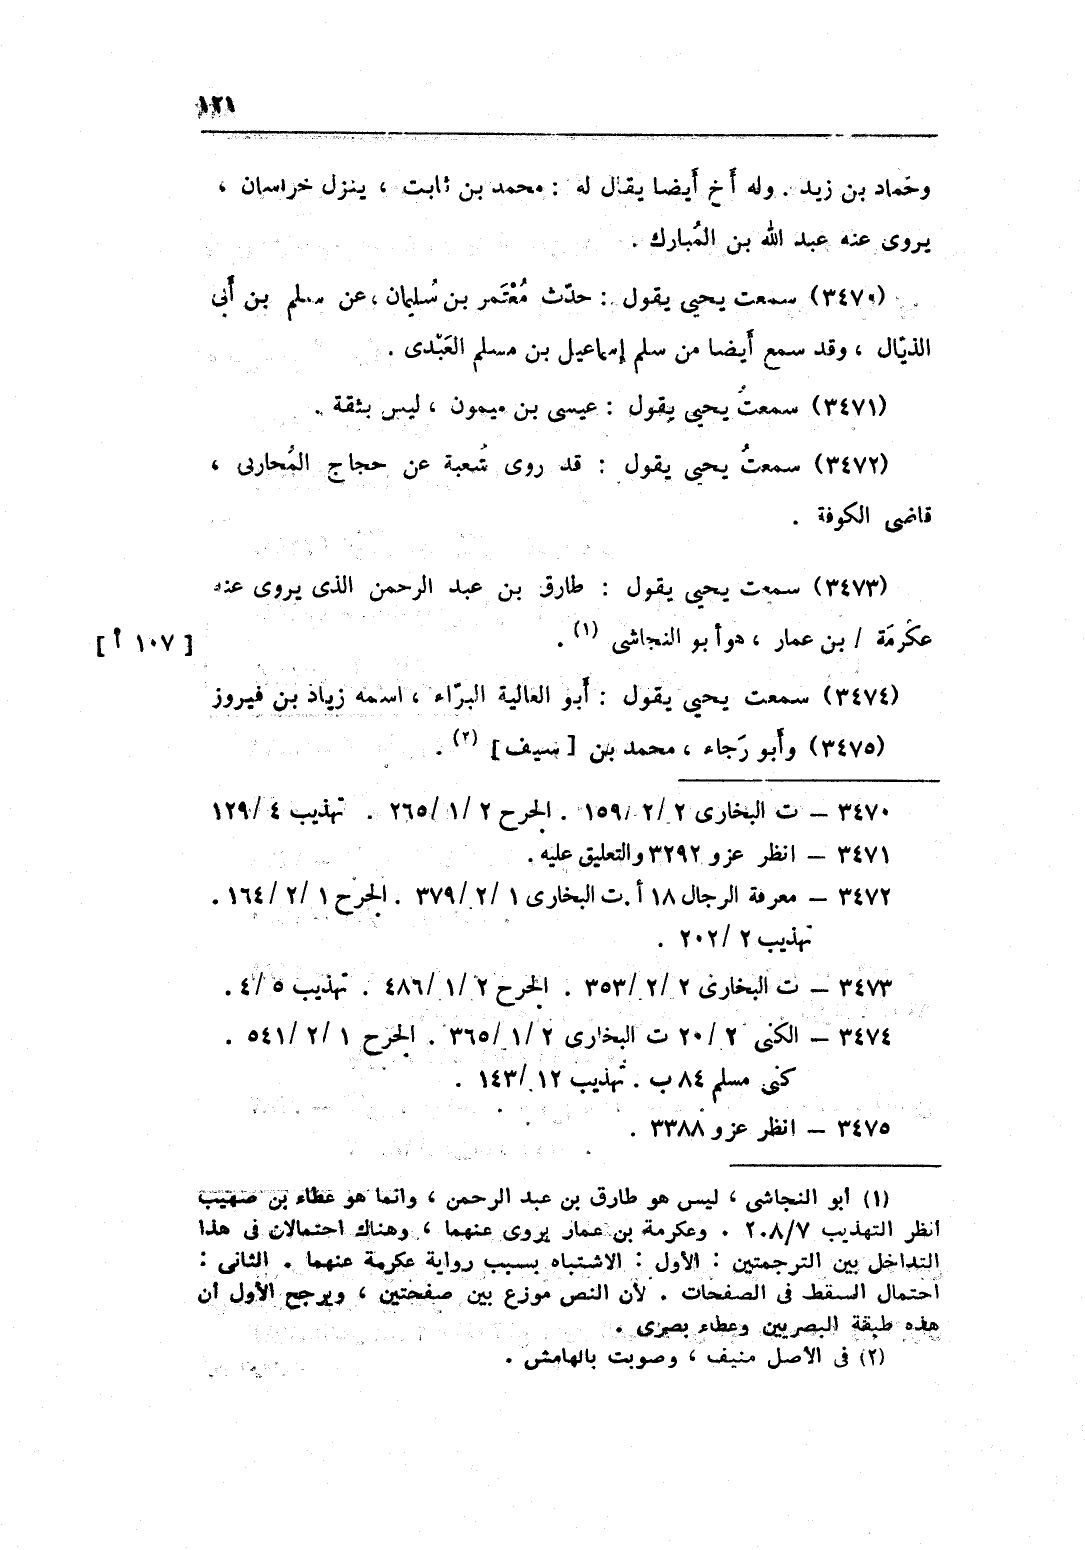 ١٢١
وحَماد بن زيد . وله أَخ أَيضا يقال له : محمد بن ثابت ، ينزل خراسان ،
يروى عنه عبد الله بن المُبارك .
(٣٤٧٠) سمعت يحيى يقول : حدّث مُعْتَمر بن سُليمان ، عن سلم بن أَبى
الذيّال ، وقد سمع أَيضا من سلم إسماعيل بن مسلم العَبْدى .
(٣٤٧١) سمعتُ يحيى يقول : عيسى بن ميمون ، ليس بثقة .
(٣٤٧٢) سمعتُ يحيى يقول : قد روى شُعبة عن حجاج المُحاربى ،
قاضى الكوفة .
(٣٤٧٣) سمعت يحيى يقول : طارق بن عبد الرحمن الذى يروى عنه
عكْرمَة / بن عمار ، هو أبو النجاشى (١) .
[ ١٠٧ أ ]
(٣٤٧٤) سمعت يحيى يقول : أَبو العالية البرّاء ، اسمه زياد بن فيروز
(٣٤٧٥) وأَبو رَجاء ، محمد بن [ سيف ] (٢) .
٣٤٧٠ – ت البخارى ٢ /٢ /١٥٩ . الجرح ٢ /١ /٢٦٥ . تهذيب ٤ /١٢٩
٣٤٧١ – انظر عزو ٣٢٩٢ والتعليق عليه .
٣٤٧٢ – معرفة الرجال ١٨ أ . ت البخارى ١ /٢ /٣٧٩ . الجرح ١ /٢ /١٦٤ .
تهذيب ٢ /٢٠٢ .
٣٤٧٣ – ت البخارى ٢ /٢ /٣٥٣ . الجرح ٢ /١ /٤٨٦ . تهذيب ٥ /٤ .
٣٤٧٤ – الكنى ٢ /٢٠ ت البخارى ٢ /١ /٣٦٥ . الجرح ١ /٢ /٥٤١ .
كنى مسلم ٨٤ ب . تهذيب ١٢ /١٤٣ .
٣٤٧٥ – انظر عزو ٣٣٨٨ .
(١) أبو النجاشى ، ليس هو طارق بن عبد الرحمن ، وانما هو عطاء بن صهيب
انظر التهذيب ٢٠٨/٧ . وعكرمة بن عمار يروى عنهما ، وهناك احتمالان فى هذا
التداخل بين الترجمتين : الأول : الاشتباه بسبب رواية عكرمة عنهما . الثانى :
احتمال السقط فى الصفحات . لأن النص موزع بين صفحتين ، ويرجح الأول أن
هذه طبقة البصريين وعطاء بصرى .
(٢) فى الأصل منيف ، وصوبت بالهامش .